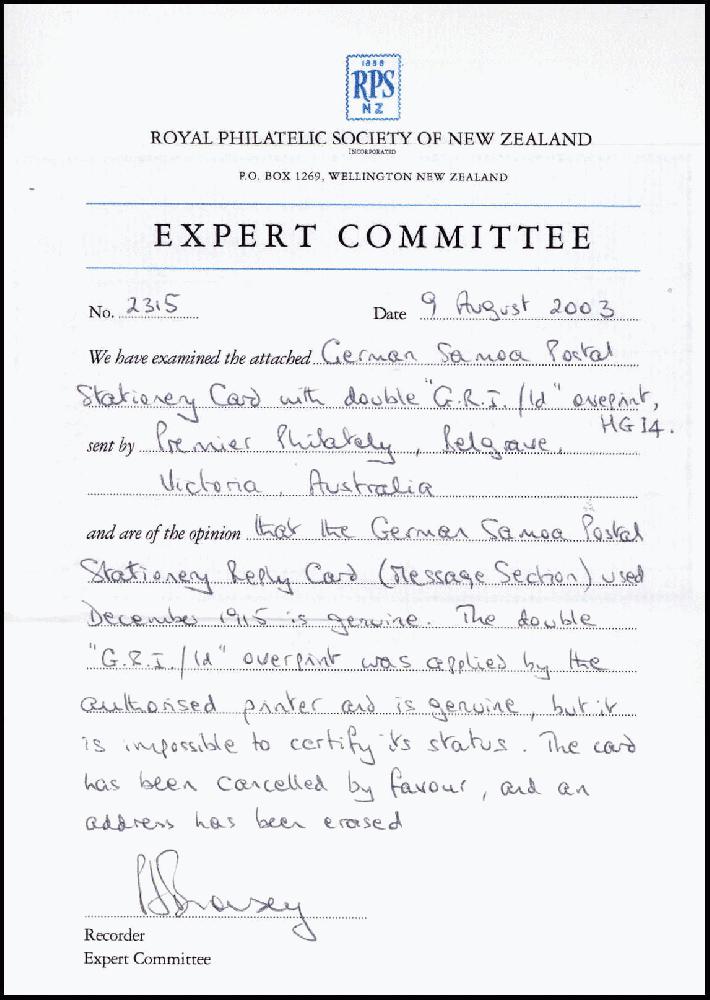 1888
RPS
NZ
ROYAL PHILATELIC SOCIETY OF NEW ZEALAND
INCORPORATED
P.O. BOX 1269, WELLINGTON NEW ZEALAND
EXPERT COMMITTEE
No. 2315 Date 9 August 2003
We have examined the attached German Samoa Postal
Stationery Card with double "G.R.I. /1d" overprint,
HG 14.
sent by Premier Philately, Belgrave,
Victoria, Australia
and are of the opinion that the German Samoa Postal
Stationery Reply Card (Message Section) used
December 1915 is genuine. The double
"G.R.I./1d" overprint was applied by the
authorised printer and is genuine, but it
is impossible to certify its status. The card
has been cancelled by favour, and an
address has been erased
Recorder
Expert Committee